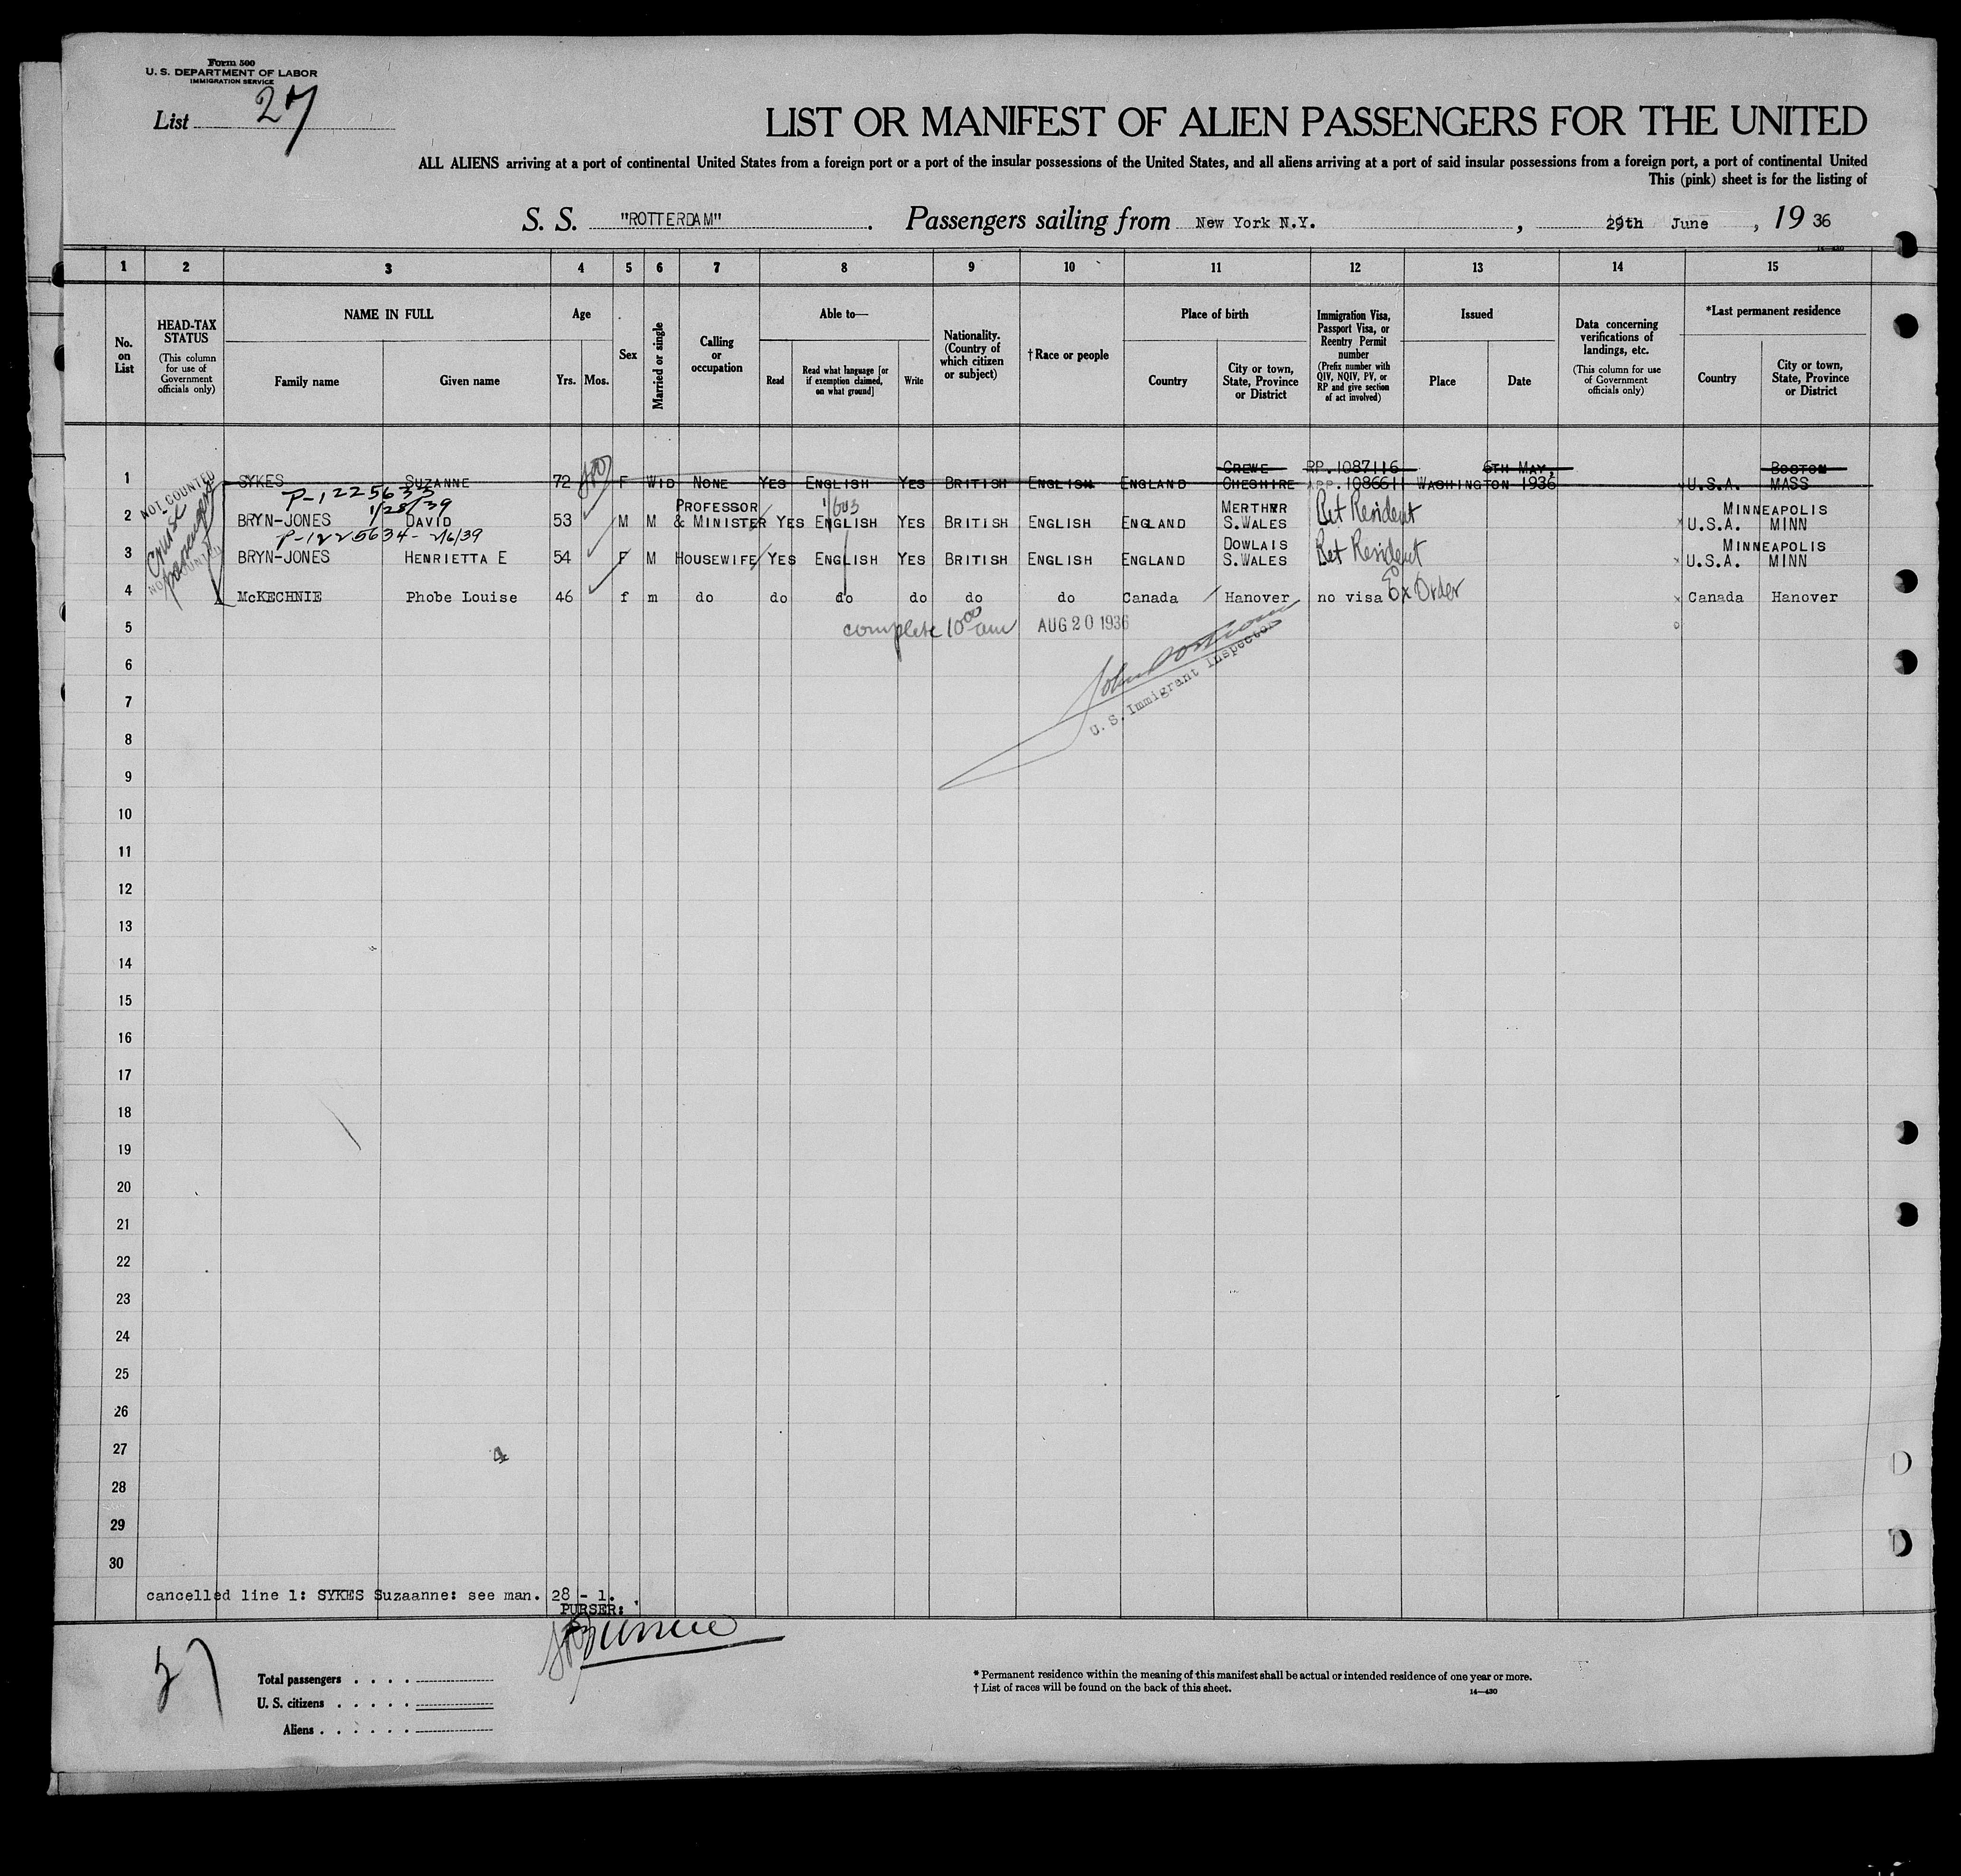 Form 500
U. S. DEPARTMENT OF LABOR
IMMIGRATION SERVICE
List 27
LIST OR MANIFEST OF ALIEN PASSENGERS FOR THE UNITED
ALL ALIENS arriving at a port of continental United States from a foreign port or a port of the insular possessions of the United States, and all aliens arriving at a port of said insular possessions from a foreign port, a port of continental United
This (pink) sheet is for the listing of
S. S. "ROTTERDAM". Passengers sailing from New York N.Y., 29th June, 19 36
1 2 3 4 5 6 7 8 9 10 11 12 13 14 15
No. on List
HEAD-TAX STATUS (This column for use of Government officials only)
NAME IN FULL
Family name Given name
Age
Yrs. Mos.
Sex
Married or single
Calling or occupation
Able to—
Read
Read what language [or if exemption claimed, on what ground]
Write
Nationality. (Country of which citizen or subject)
†Race or people
Place of birth
Country
City or town, State, Province or District
Immigration Visa, Passport Visa, or Reentry Permit number (Prefix number with QIV, NQIV, PV, or RP and give section of act involved)
Issued
Place Date
Data concerning verifications of landings, etc. (This column for use of Government officials only)
*Last permanent residence
Country
City or town, State, Province or District
NOT COUNTED
Cruise passengers
CREWE RP.1087116 6TH MAY, BOSTON
1 SYKES SUZANNE 72 F WID NONE YES ENGLISH YES BRITISH ENGLISH ENGLAND CHESHIRE 1086611 WASHINGTON 1936 U.S.A. MASS
P-1225633
1/28/39
PROFESSOR MERTHYR MINNEAPOLIS
2 BRYN-JONES DAVID 53 M M & MINISTER YES ENGLISH YES BRITISH ENGLISH ENGLAND S.WALES Ret Resident U.S.A. MINN
P-1225634 - 2/6/39
DOWLAIS MINNEAPOLIS
3 BRYN-JONES HENRIETTA E 54 F M HOUSEWIFE YES ENGLISH YES BRITISH ENGLISH ENGLAND S.WALES Ret Resident U.S.A. MINN
4 McKECHNIE Phobe Louise 46 f m do do do do do do Canada Hanover no visa Ex Order Canada Hanover
5 complete 10 00 am AUG 20 1936
6
7 U. S. Immigrant Inspector
8
9
10
11
12
13
14
15
16
17
18
19
20
21
22
23
24
25
26
27 4
28
29
30
cancelled line 1: SYKES Suzaanne: see man. 28 - 1.
PURSER:
27
Total passengers . . . .
U. S. citizens . . . . .
Aliens . . . . . .
* Permanent residence within the meaning of this manifest shall be actual or intended residence of one year or more.
† List of races will be found on the back of this sheet. 14—430